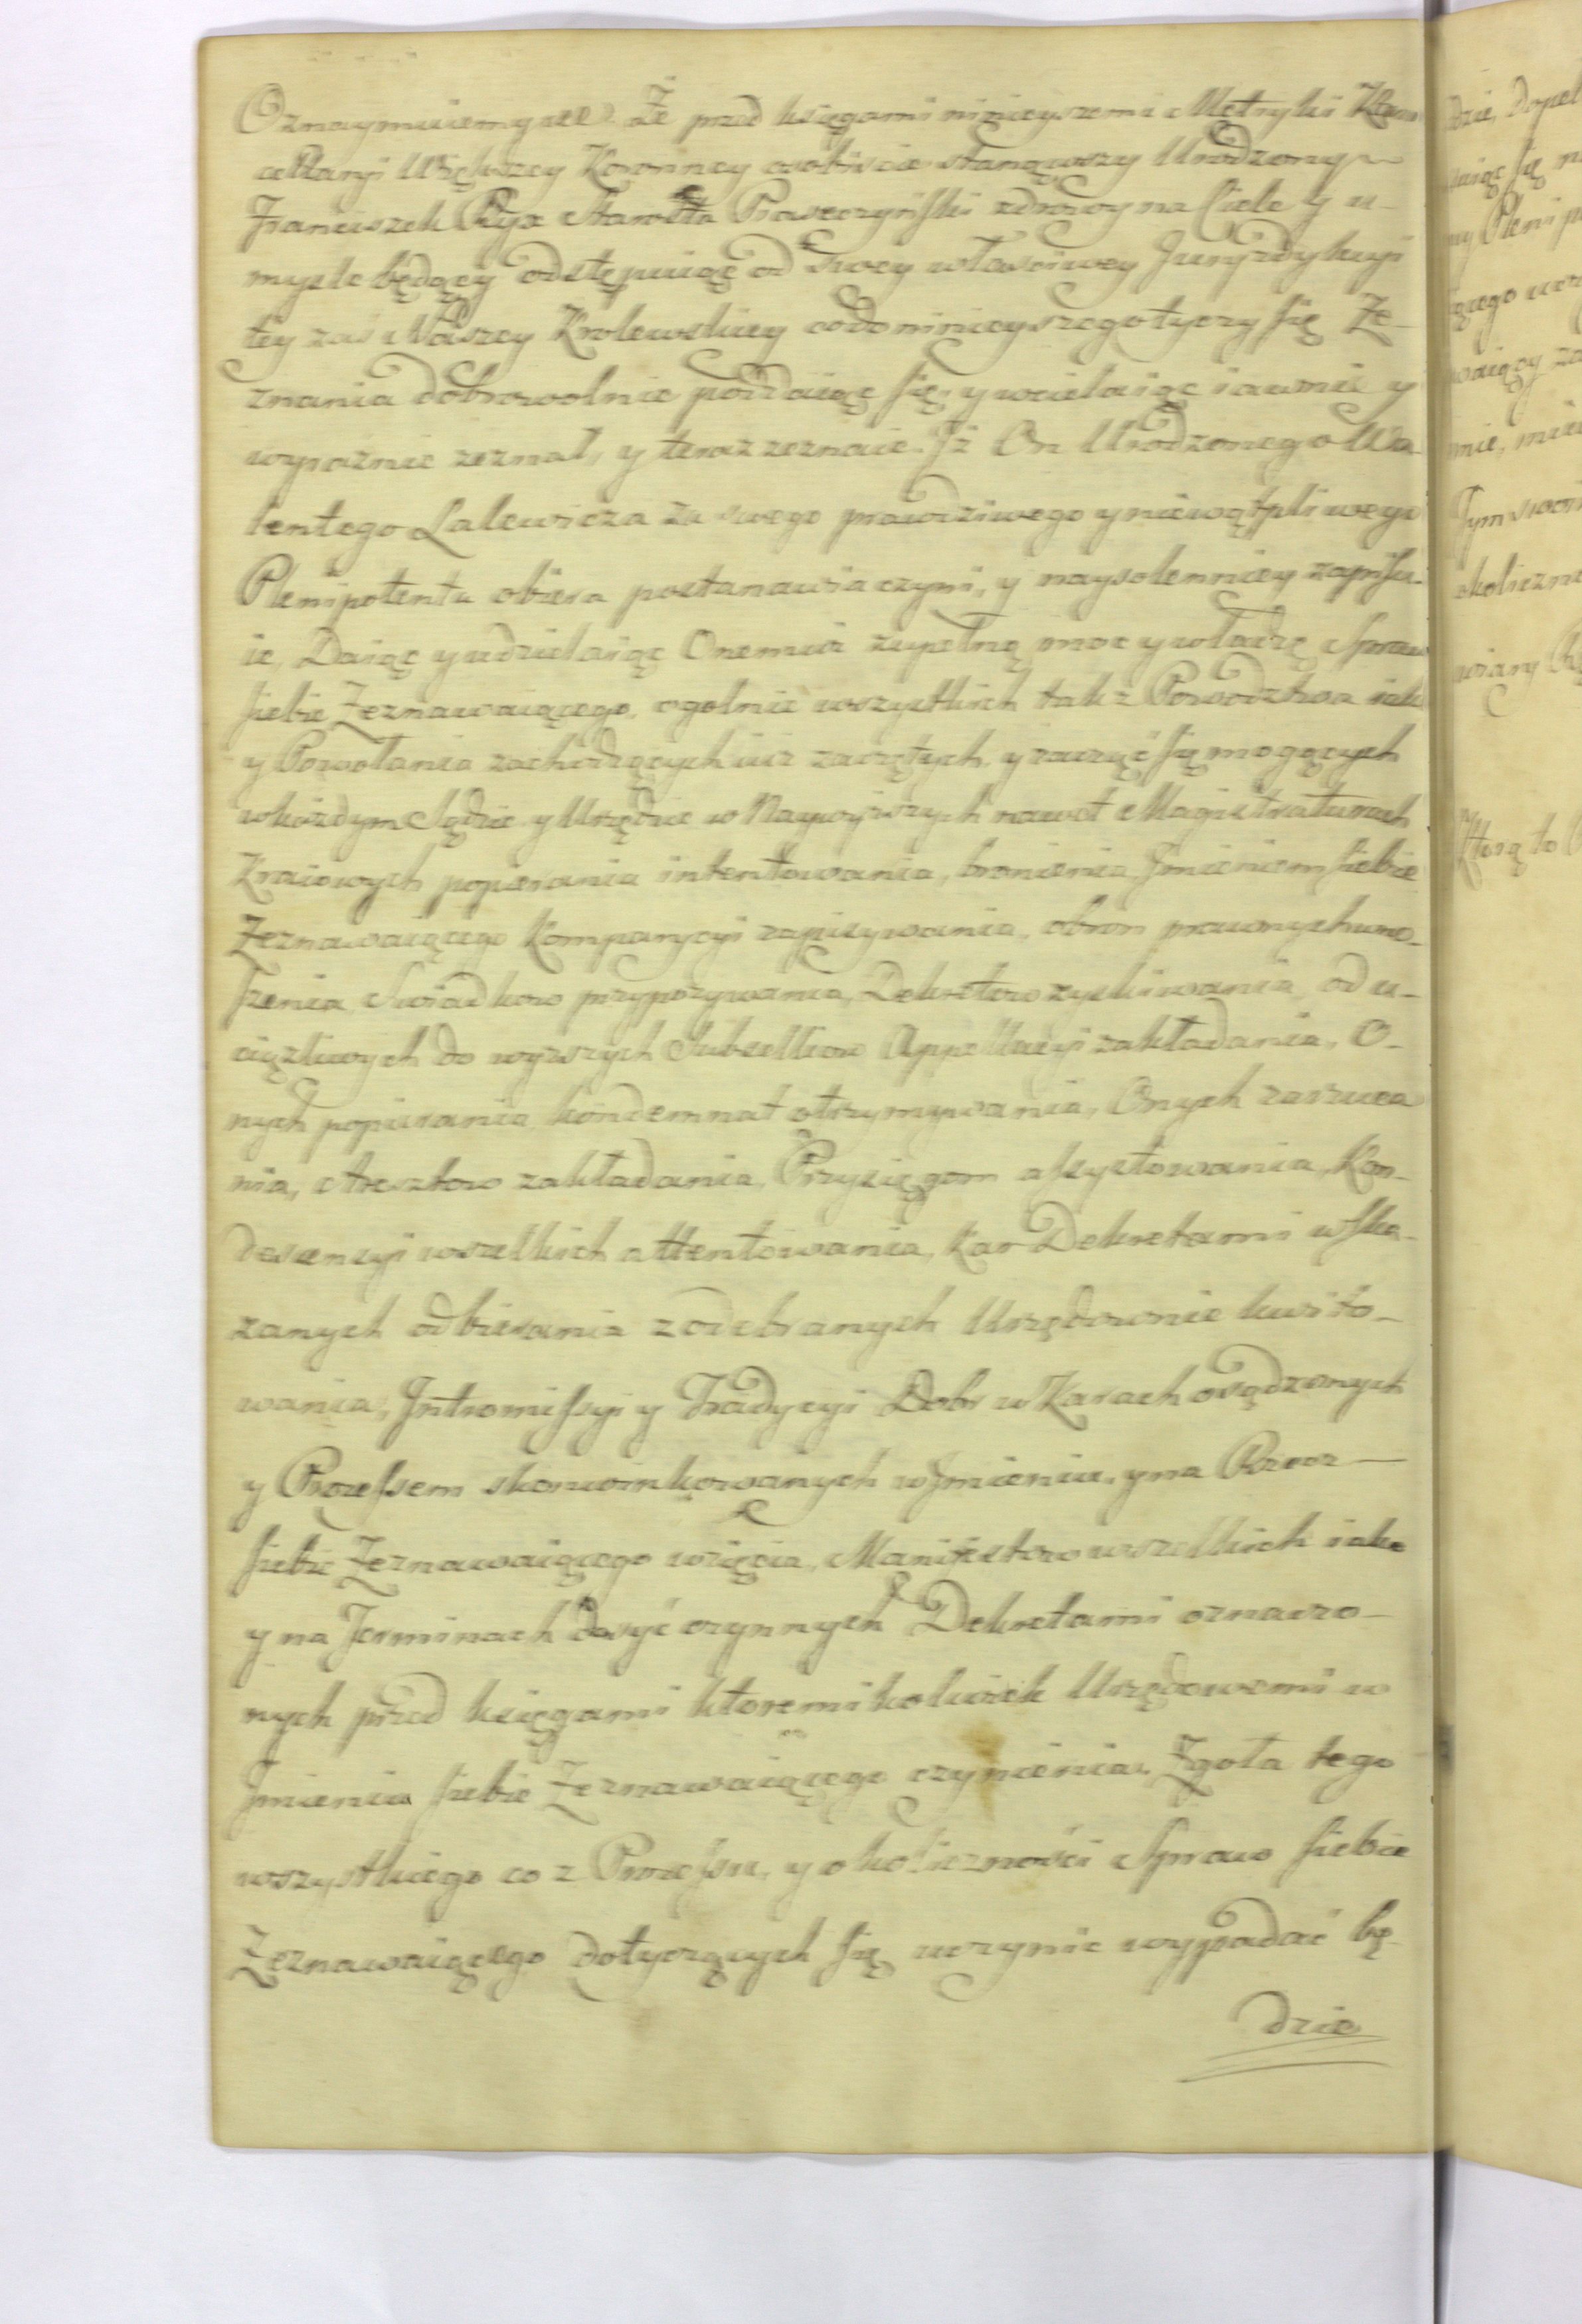 Oznaymuiemy etc. Że przed księgami ninieyszemi Metryki Kan
cellaryi Większey Koronney osobiście stanąwszy Urodzony
Franciszek Ryx Starosta Piaseczyński zdrowy na Ciele y u-
myśle będący odstępuiąc od swey własciwey Juryzdykcyi
tey zaś Naszey Krolewskiey co do ninieyszego tyczy się Ze-
znania dobrowolnie poddaiąc się, y wcielaiąc iawnie y
wyraznie zeznał, y teraz zeznaie. Iż On Urodzonego Wa
lentego Lalewicza za swego prawdziwego y niewątpliwego
Plenipotenta obiera postanawia czyni, y naysolenniey zapisu-
ie, Daiąc y udzielaiąc Onemuż zupełną moc y władzę Spraw
siebie Zeznawaiącego, ogolnie wszystkich tak z Powodztwa iak
y Powołania zachodzących iuż zaczętych, y zacząć się mogących
w każdym Sądzie y Urzędzie w Naywyższych nawet Magistraturach
Kraiowych popierania intentowania, bronienia, Imieniem siebie
Zeznawaiącego Kompanycyi zapisywania, obron prawnych wno-
szenia Swiadkow przypozywania, Dekretow zyskiwania, od u-
ciązliwych do wyższych Subselliow Appellacyi zakładania, O-
nych popierania, kondemnat otrzymywania, Onych zarzuca
nia, Aresztow zakładania, Przysięgom assystowania, Kon-
descensyi wszelkich attentowania, Kar Dekretami wska-
zanych odbierania z odebranych Urzędownie kwito-
wania, Intromissyi y Tradycyi Dobr w Karach osądzonych
y Processem skonwinkowanych w Imieniu, y na Rzecz
siebie Zeznawaiącego wzięcia, Manifestow wszelkich iako
y na Terminach dosyć czynnych Dekretami oznaczo-
nych przed księgami ktoremikolwiek Urzędowemi w
Imieniu siebie Zeznawaiącego czynienia. Zgoła tego
wszystkiego co z Processu, y okoliczności Spraw siebie
Zeznawaiącego dotyczących się uczynic wypadać bę-
dzie